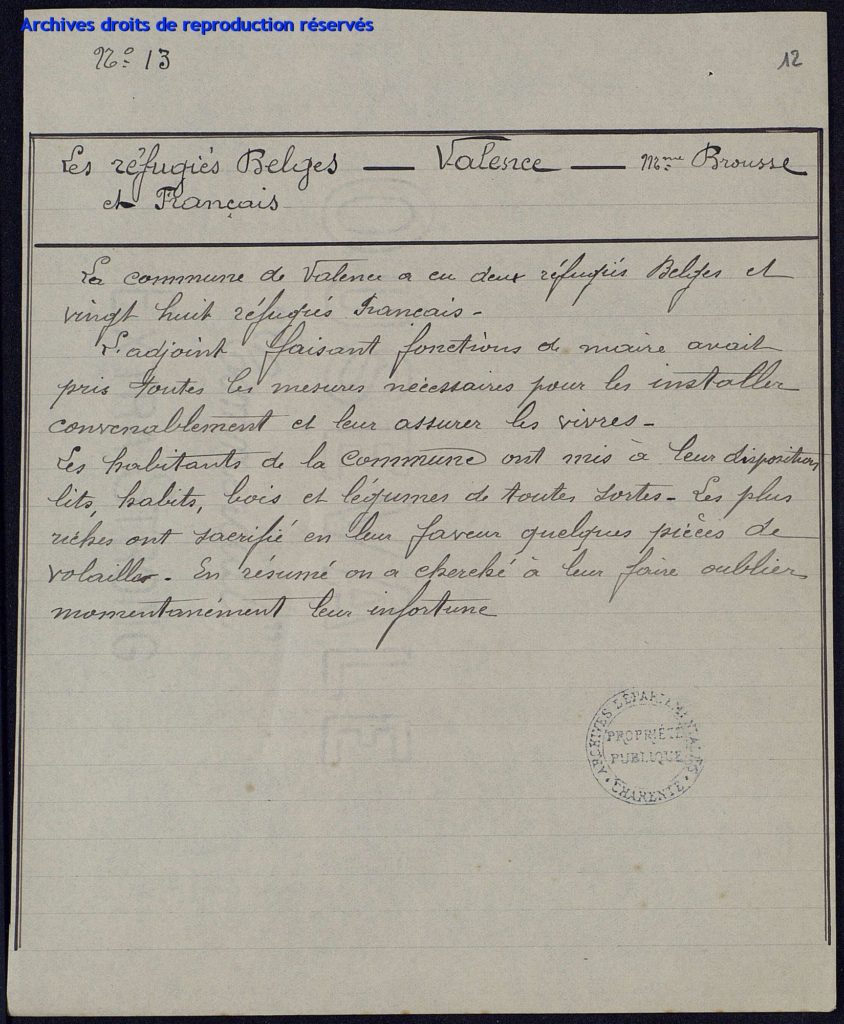 Archives droits de reproduction réservés
N° 13
12
Les réfugiés Belges — Valence — Mme Brousse
et Français
La commune de Valence a eu deux réfugiés Belges et
vingt huit réfugiés Français -
L'adjoint faisant fonctions de maire avait
pris toutes les mesures nécessaires pour les installer
convenablement et leur assurer les vivres -
Les habitants de la commune ont mis à leur disposition
lits, habits, bois et légumes de toutes sortes - Les plus
riches ont sacrifié en leur faveur quelques pièces de
volailles - En résumé on a cherché à leur faire oublier
momentanément leur infortune
ARCHIVES DÉPARTEMENTALES
PROPRIÉTÉ
PUBLIQUE
CHARENTE